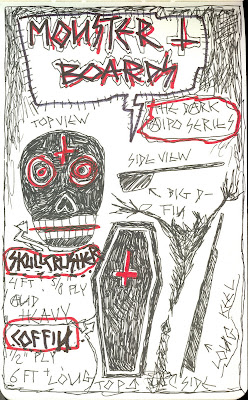 MONSTER
BOARDS
THE DARK
SERIES
TOP VIEW
SIDE VIEW
BIG D-
FIN
SKULLCRUSHER
4 FT. 5/8 PLY
AND
HEAVY
COFFIN
1/2" PLY
6 FT LONG
TOP
SIDE
LONG KEEL